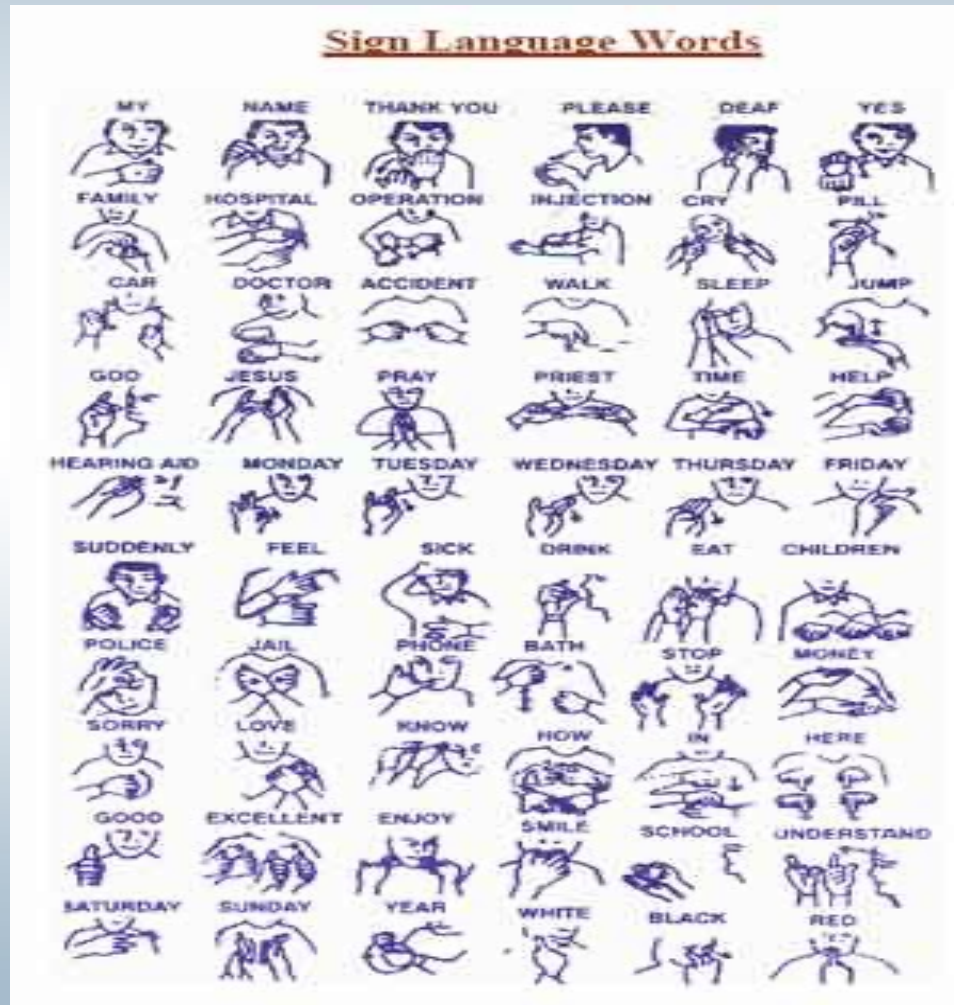 Sign Language Words
MY NAME THANK YOU PLEASE DEAF YES
FAMILY HOSPITAL OPERATION INJECTION CRY PILL
CAR DOCTOR ACCIDENT WALK SLEEP JUMP
GOD JESUS PRAY PRIEST TIME HELP
HEARING AID MONDAY TUESDAY WEDNESDAY THURSDAY FRIDAY
SUDDENLY FEEL SICK DRINK EAT CHILDREN
POLICE JAIL PHONE BATH STOP MONEY
SORRY LOVE KNOW HOW IN HERE
GOOD EXCELLENT ENJOY SMILE SCHOOL UNDERSTAND
SATURDAY SUNDAY YEAR WHITE BLACK RED